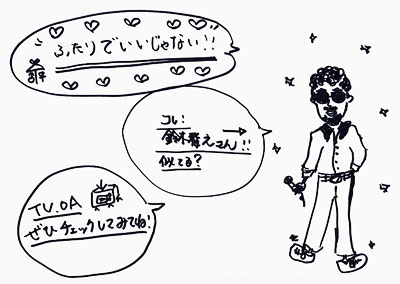 ふたりでいいじゃない!!
コレ!
鈴木雅之さん!!
似てる?
TV.OA
ぜひチェックしてみてね!